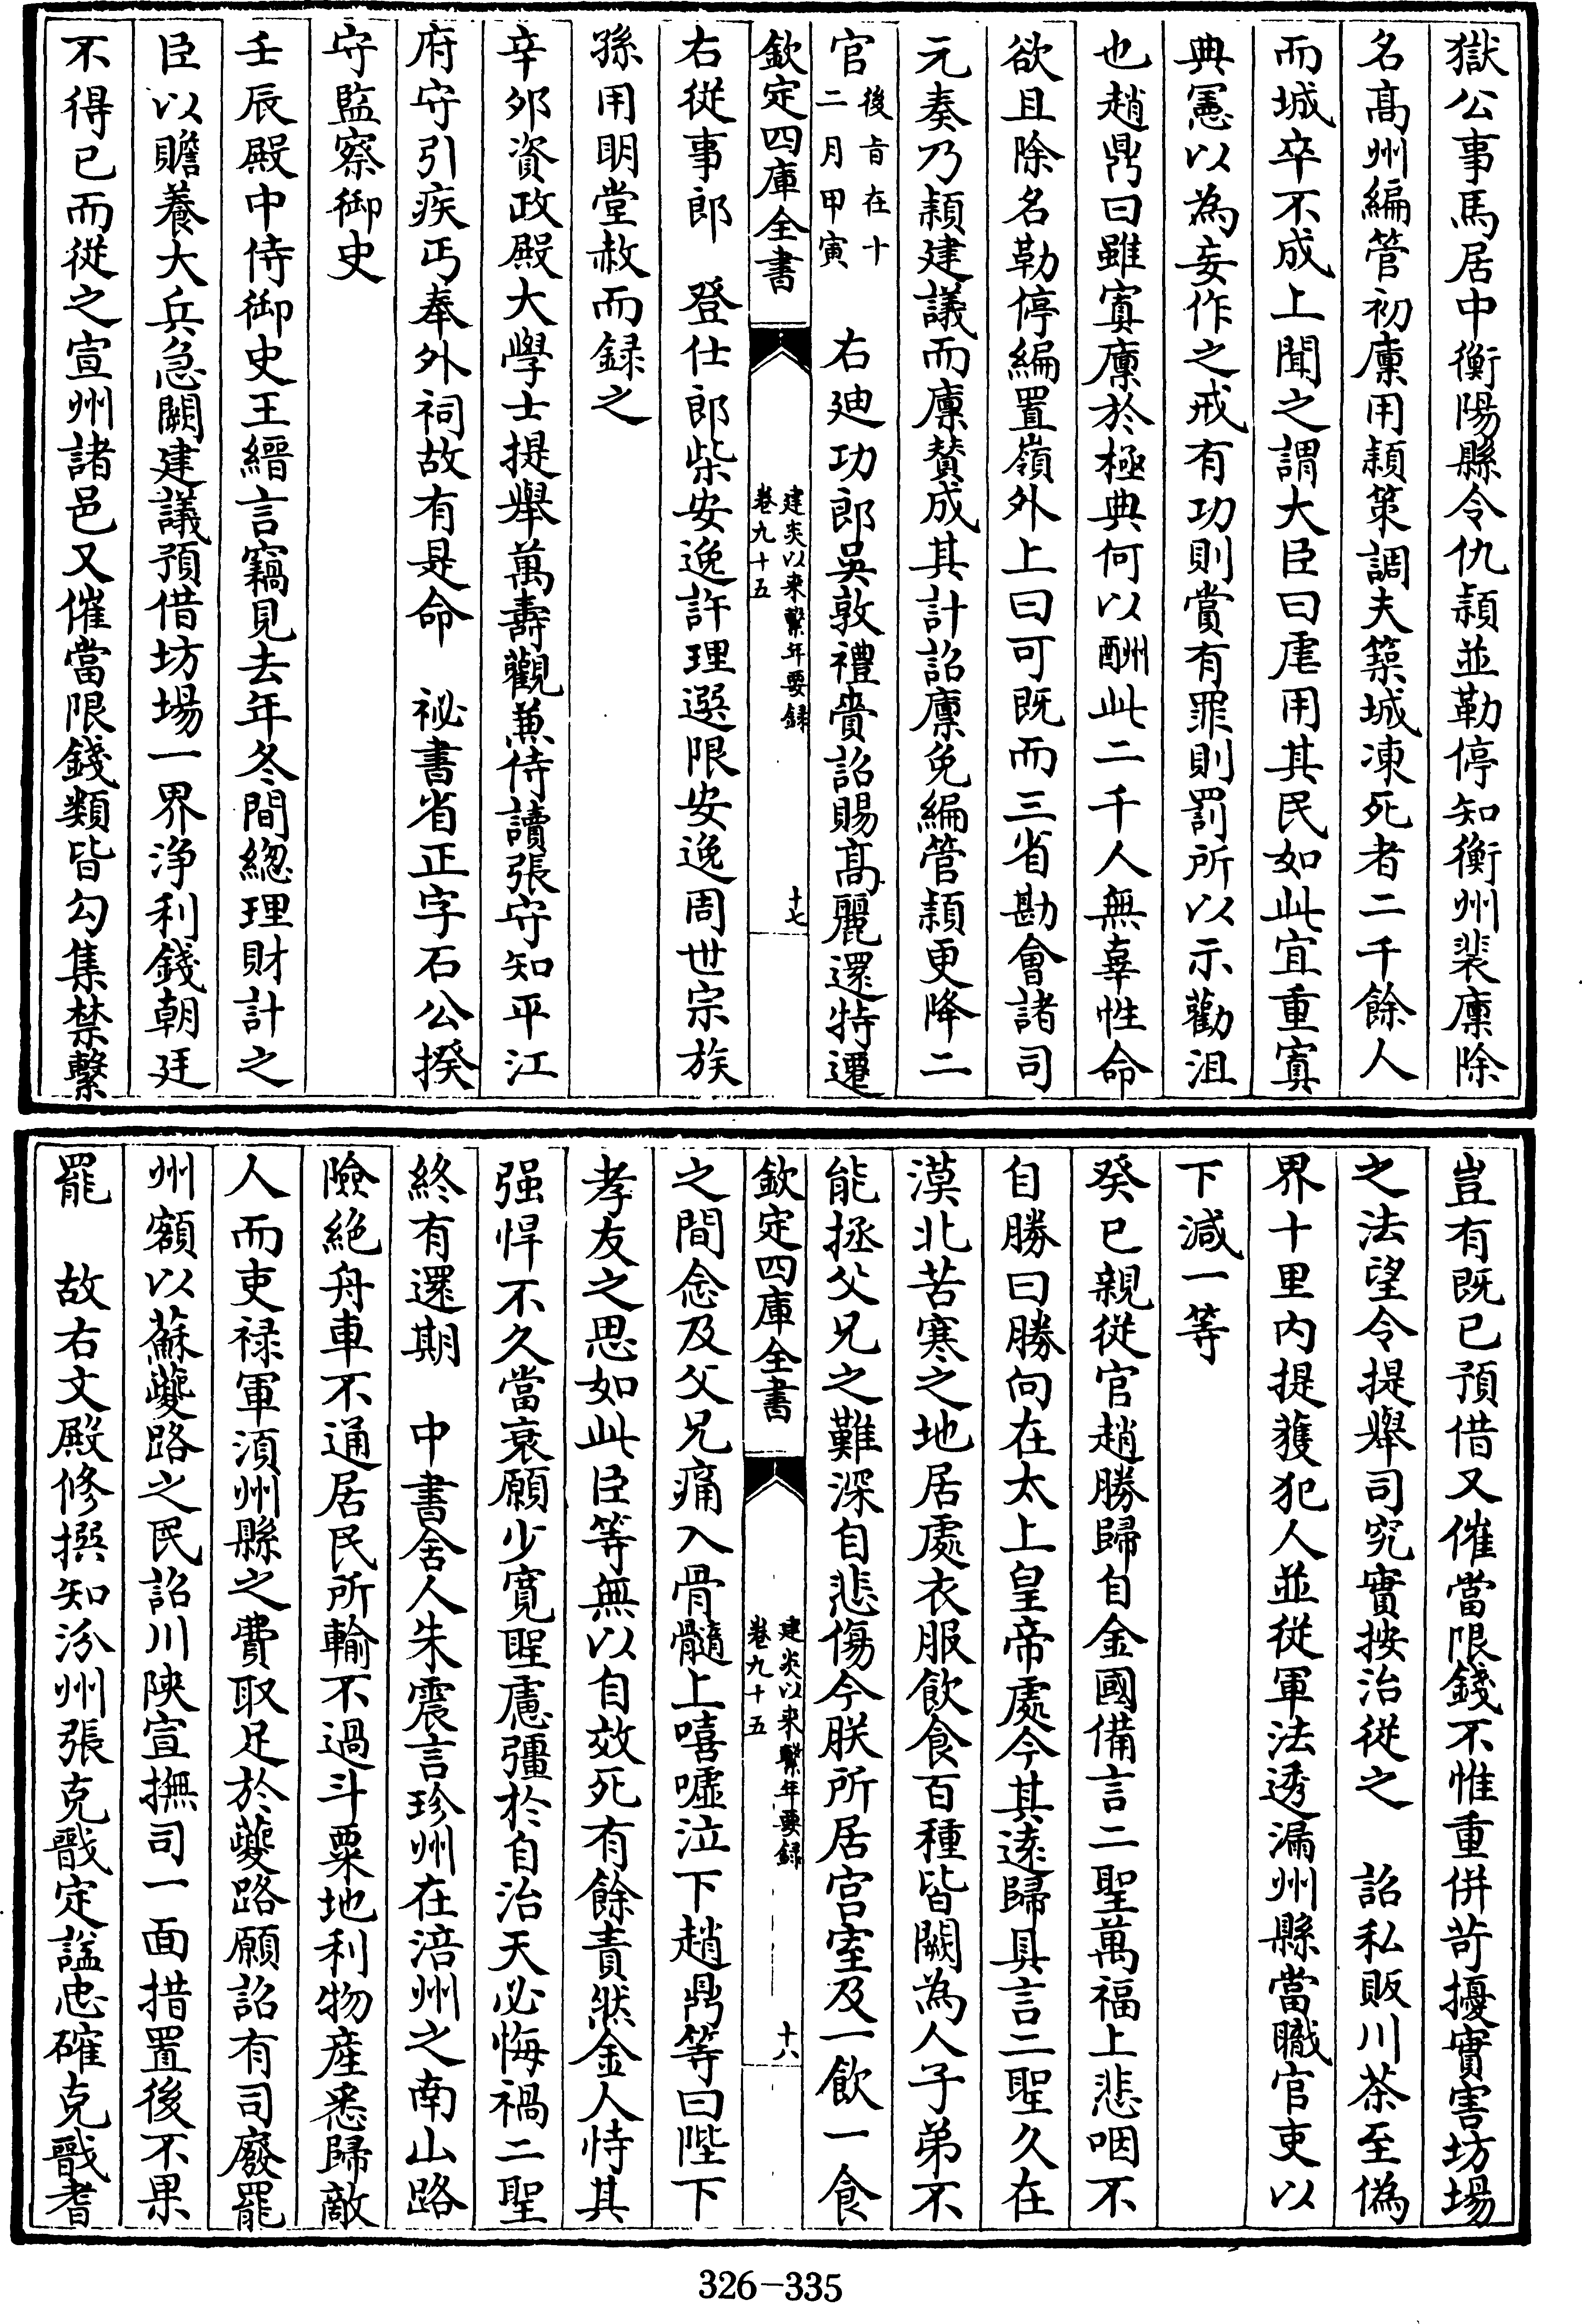 獄公事馬居中衡陽縣令仇頴並勒停知衡州裴廩除
名髙州編管初廩用頴策調夫築城凍死者二千餘人
而城卒不成上聞之謂大臣曰虐用其民如此宜重寘
典憲以為妄作之戒有功則賞有罪則罰所以示勸沮
也趙鼎曰雖寘廩於極典何以酬此二千人無辜性命
欲且除名勒停編置嶺外上曰可既而三省勘會諸司
元奏乃頴建議而廩賛成其計詔廩免編管頴更降二
官後㫖在十二月甲寅　右廸功郎吳敦禮賫詔賜髙麗還特遷
欽定四庫全書
建炎以來繫年要録
卷九十五
十七
右從事郎　登仕郎柴安逸許理選限安逸周世宗族
孫用明堂赦而録之
辛夘資政殿大學士提舉萬壽觀兼侍讀張守知平江
府守引疾丐奉外祠故有是命　祕書省正字石公揆
守監察御史
壬辰殿中侍御史王縉言竊見去年冬間緫理財計之
臣以贍養大兵急闕建議預借坊場一界净利錢朝廷
不得已而從之宣州諸邑又催當限錢類皆勾集禁繫
豈有既已預借又催當限錢不惟重併苛擾實害坊場
之法望令提舉司究實按治從之　詔私販川茶至偽
界十里内提獲犯人並從軍法透漏州縣當職官吏以
下減一等
癸巳親從官趙勝歸自金國備言二聖萬福上悲咽不
自勝曰勝向在太上皇帝處今其逺歸具言二聖久在
漠北苦寒之地居處衣服飲食百種皆闕為人子弟不
能拯父兄之難深自悲傷今朕所居宫室及一飲一食
欽定四庫全書
建炎以來繫年要録
卷九十五
十八
之間念及父兄痛入骨髓上嘻嘘泣下趙鼎等曰陛下
孝友之思如此臣等無以自效死有餘責然金人恃其
强悍不久當衰願少寛聖慮彊於自治天必悔禍二聖
終有還期　中書舍人朱震言珍州在涪州之南山路
險絶舟車不通居民所輸不過斗粟地利物産悉歸敵
人而吏禄軍湏州縣之費取足於夔路願詔有司廢罷
州額以蘇夔路之民詔川陜宣撫司一面措置後不果
罷　故右文殿修撰知汾州張克戩定諡忠確克戩耆
326-335